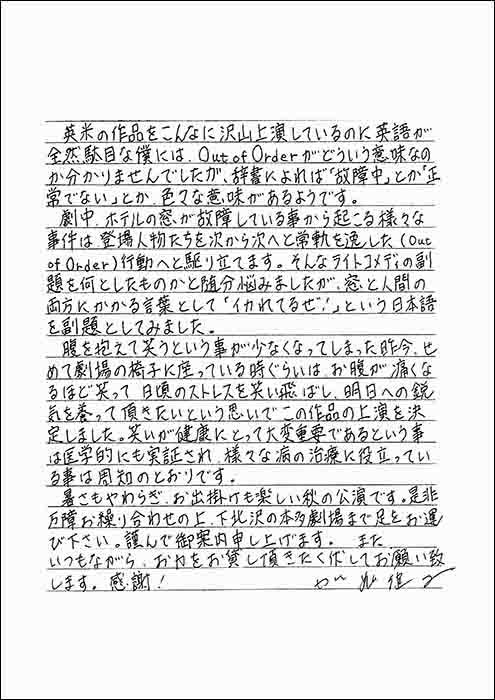 英米の作品をこんなに沢山上演しているのに英語が
全然駄目な僕には、Out of Orderがどういう意味なの
か分かりませんでしたが、辞書によれば「故障中」とか「正
常でない」とか、色々な意味があるようです。
劇中、ホテルの窓が故障している事から起こる様々な
事件は、登場人物たちを次から次へと常軌を逸した(Out
of Order)行動へと駆り立てます。そんなライトコメディの副
題を何としたものかと随分悩みましたが、窓と人間の
両方にかかる言葉として「イカれてるぜ!」という日本語
を副題としてみました。
腹を抱えて笑うという事が少なくなってしまった昨今、せ
めて劇場の椅子に座っている時ぐらいは、お腹が痛くな
るほど笑って、日頃のストレスを笑い飛ばし、明日への鋭
気を養って頂きたいという思いでこの作品の上演を決
定しました。笑いが健康にとって大変重要であるという事
は医学的にも実証され、様々な病の治療に役立ってい
る事は周知のとおりです。
暑さもやわらぎ、お出掛けも楽しい秋の公演です。是非
万障お繰り合わせの上、下北沢の本多劇場まで足をお運
び下さい。謹んで御案内申し上げます。 また、
いつもながら、お力をお貸し頂きたく伏してお願い致
します。感謝!